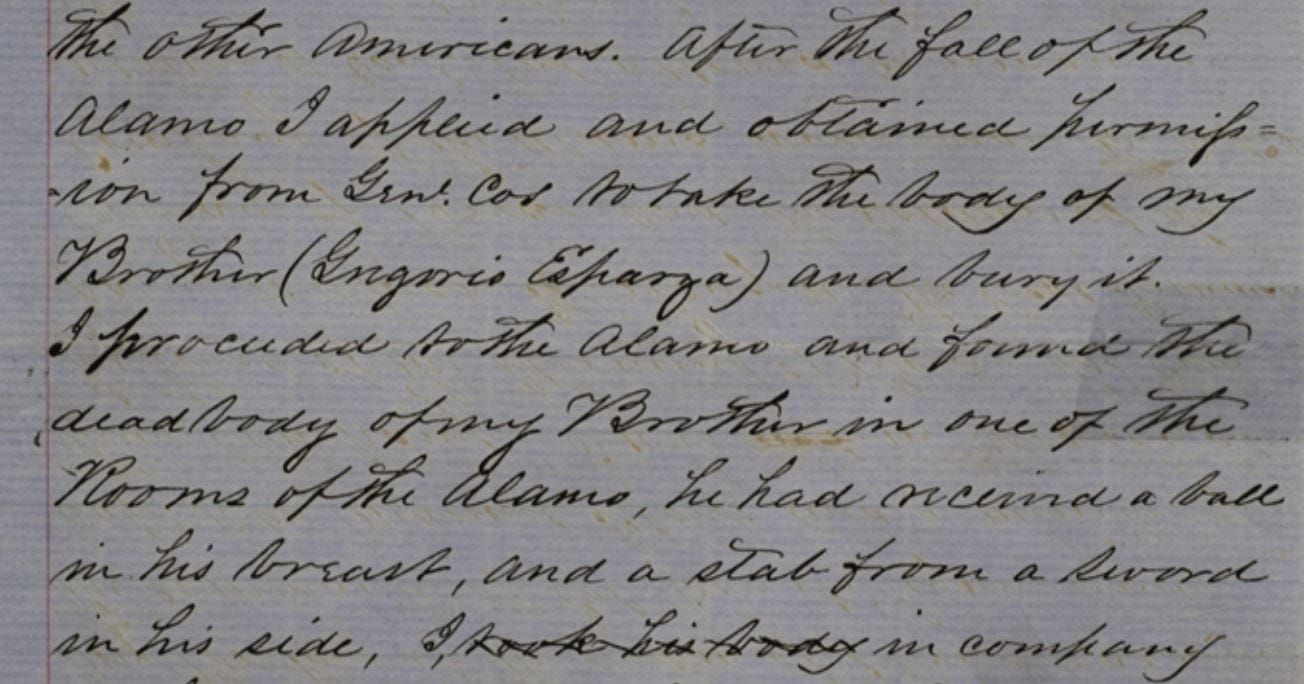 the other Americans. After the fall of the
Alamo I applied and obtained permiss=
=ion from Genl. Cos to take the body of my
Brother (Gregorio Esparza) and bury it.
I proceeded to the Alamo and found the
dead body of my Brother in one of the
Rooms of the Alamo, he had received a ball
in his breast, and a stab from a sword
in his side, I, took his body in company